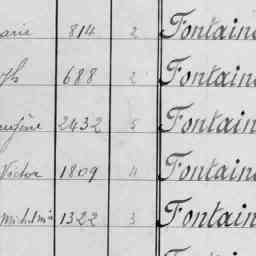 arie 814 2 Fontain
ph 688 2 Fontain
ugène 2432 5 Fontain
Victor 1809 4 Fontain
1322 3 Fontain